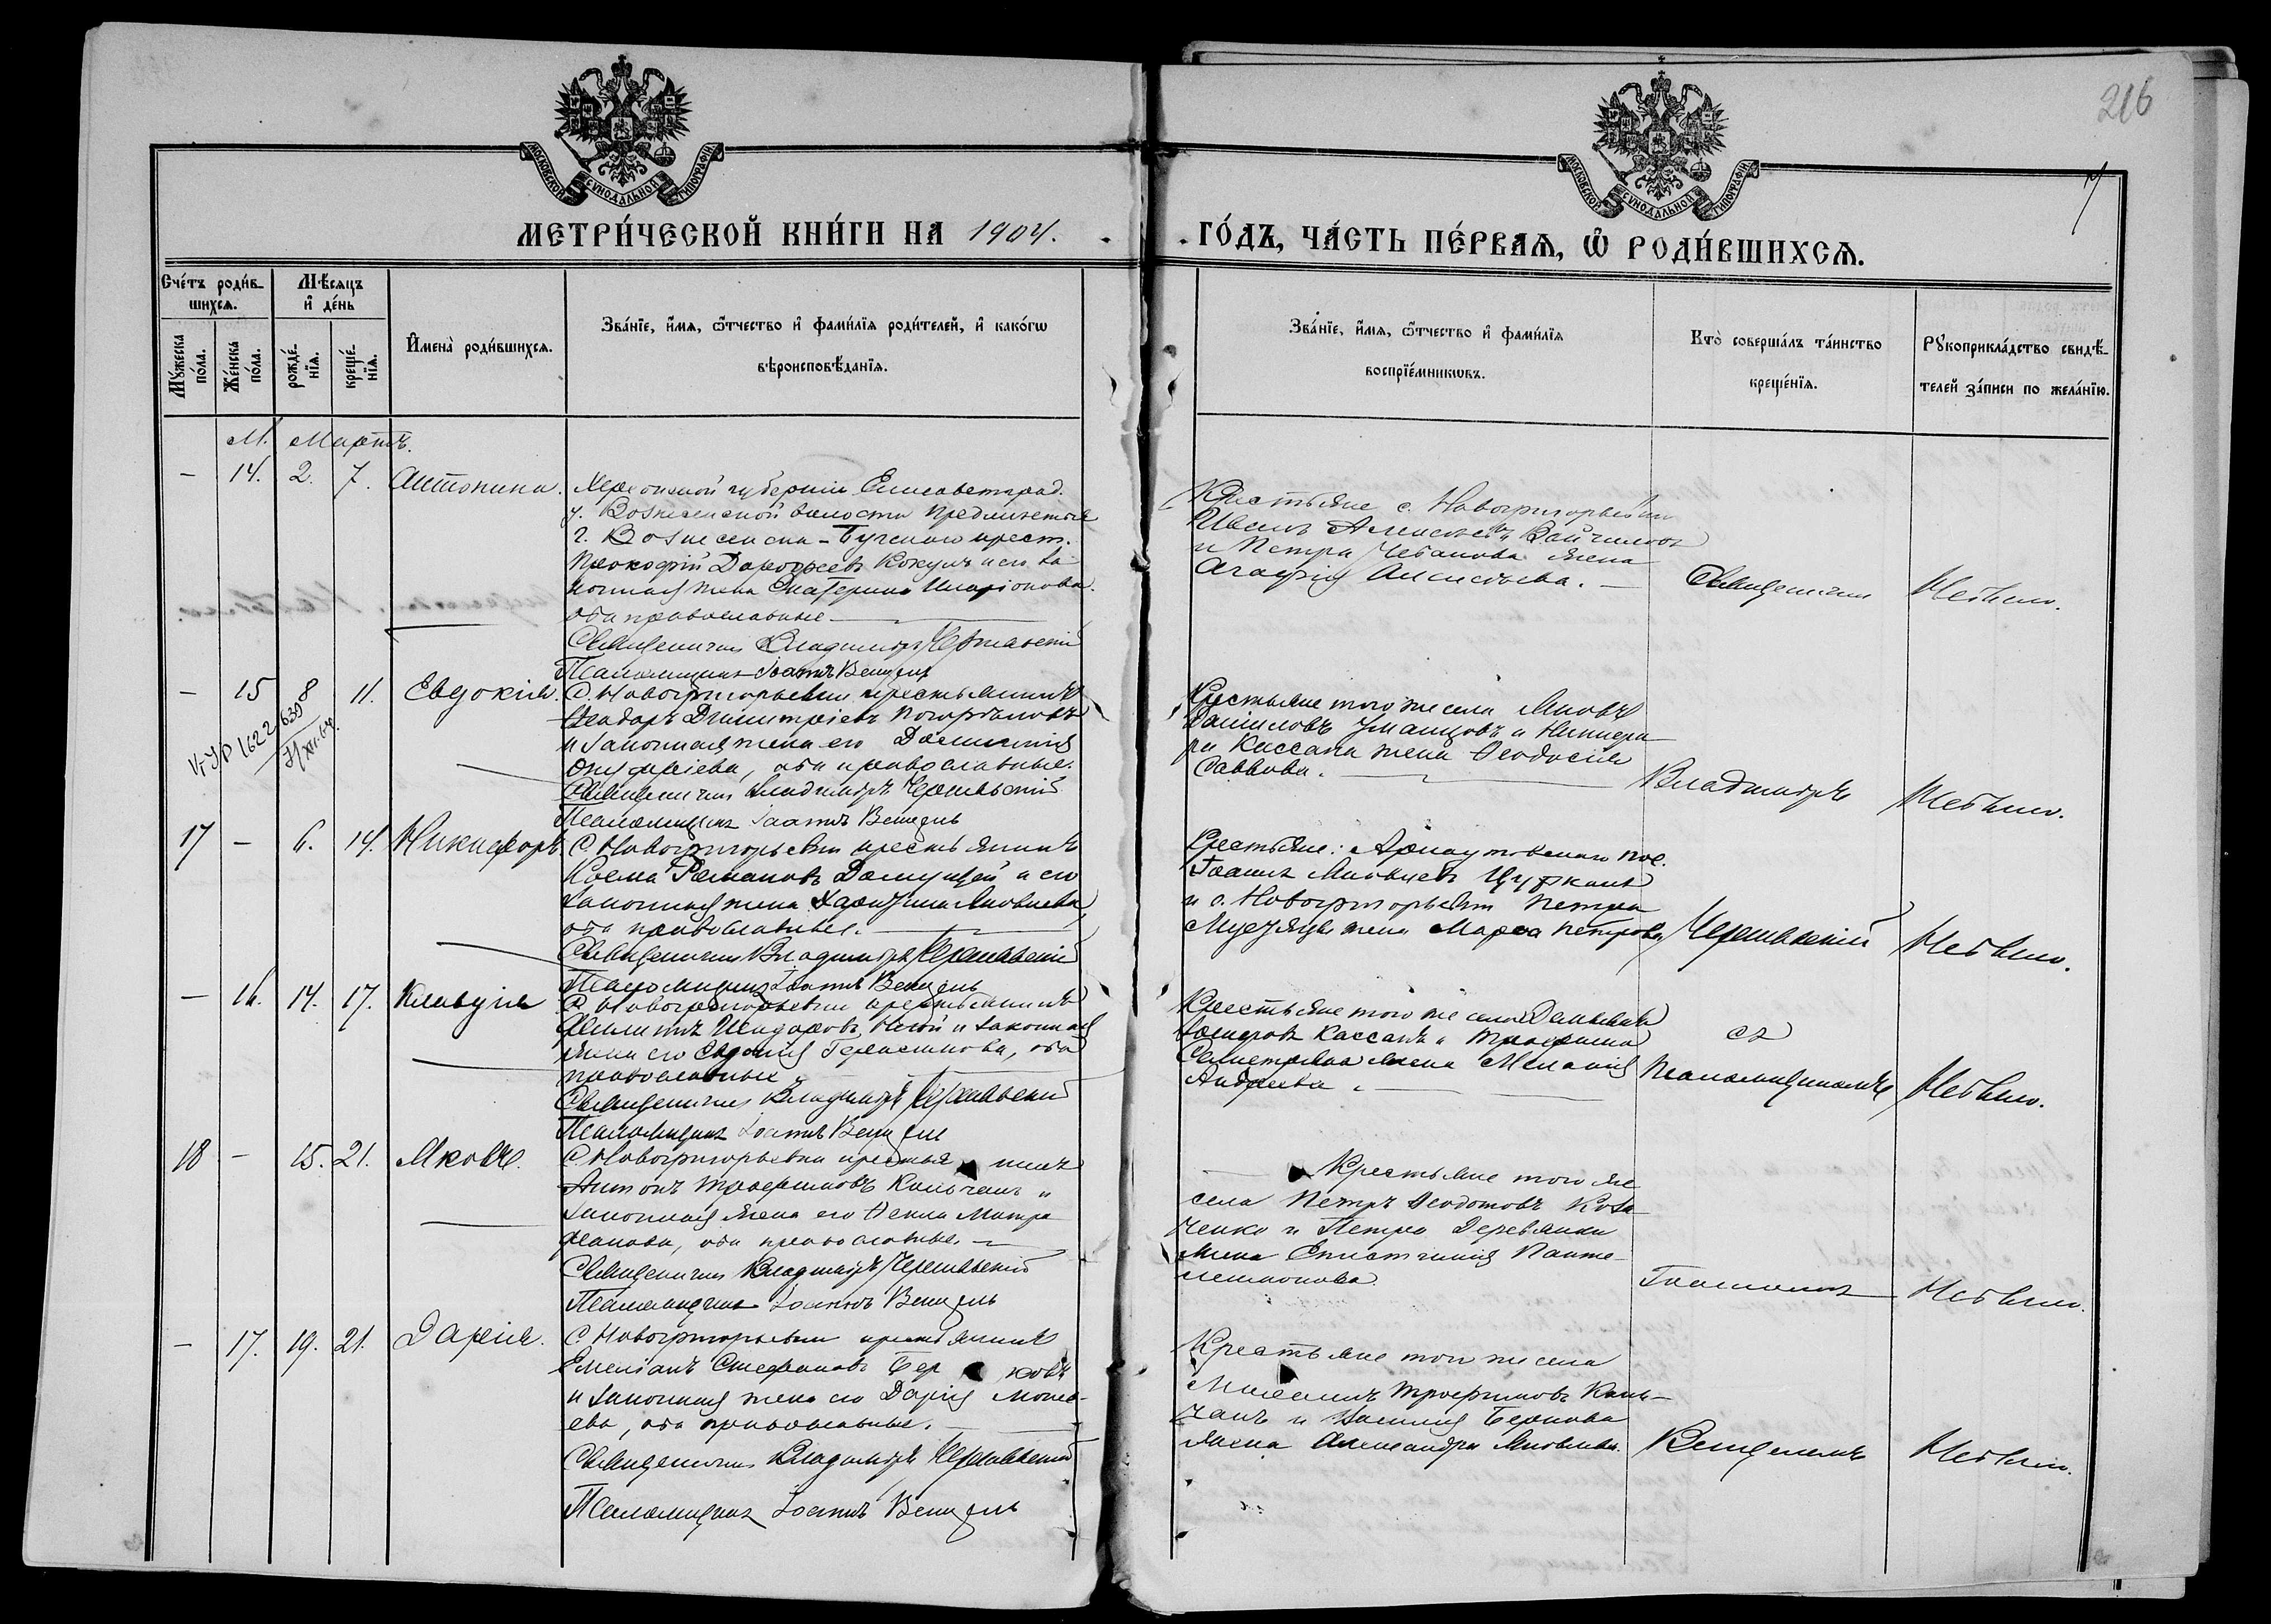 216
7
МОСКОВСКОЙ СѴНОДАЛЬНОЙ ТИПОГРАФІИ
МОСКОВСКОЙ СѴНОДАЛЬНОЙ ТИПОГРАФІИ
МЕТРИ́ЧЕСКОЙ КНИ́ГИ НА 1904.
ГО́ДЪ, ЧА́СТЬ ПЕ́РВАѦ, Ѿ РОДИ́ВШИХСѦ.
Сче́тъ роди́в-
шихсѧ.
Мѣ́сѧцъ
и҆ де́нь
Мꙋ́жеска
по́ла.
Же́нска
по́ла.
рожде́-
нїѧ.
креще́-
нїѧ.
И҆мена̀ роди́вшихсѧ.
Зва́нїе, и҆́мѧ, ѻ҆́тчество и҆ фами́лїѧ роди́телей, и҆ како́гѡ
вѣроисповѣ́данїѧ.
Зва́нїе, и҆́мѧ, ѻ҆́тчество и҆ фами́лїѧ
воспрїе́мникѡвъ.
Кто̀ соверша́лъ та́инство
креще́нїѧ.
Рꙋкоприкла́дство свидѣ́-
телей за́писи по жела́нїю.
М. Мартъ.
— 14. 2. 7. Антонина.
Херсонской губерніи Елисаветград.
у. Вознесенской волости
г. Вознесенска - Бугскаго крест.
Прокофій Дорофеевъ Кокулъ и его за
конная жена Екатерина Иларіонова.
оба православные.
Священникъ Владиміръ Чернявскій
Псаломщикъ Іоаннъ Венцель
Крестьяне с. Новогригорьевки
Иванъ Алексѣевъ
и Петра Чебанова жена
Агафія Алексѣева.
Священникъ
Не было.
— 15 8 11. Евдокія.
С. Новогригорьевки крестьянинъ
Ѳеодоръ Димитріевъ
и законная жена его Домникія
Онуфріева, оба православные.
Священникъ Владиміръ Чернявскій
Псаломщикъ Іоаннъ Венцель
Крестьяне того же села Яковъ
Даниловъ Уманцовъ и Никифо
ра Кассана жена Ѳеодосія
Саввова.
Владиміръ
Не было.
17 — 6. 14. Никифоръ.
С. Новогригорьевки крестьянинъ
Косма Романовъ и его
законная жена Харитина Яковлева
оба православные.
Священникъ Владиміръ Чернявскій
Псаломщикъ Іоаннъ Венцель
Крестьяне: Арнаутовскаго пос.
Іоаннъ Яковлевъ Цуркань
и с. Новогригорьевки Петра
жена Марѳа Петрова
Чернявскій
Не было.
— 16. 14. 17. Клавдія
С. Новогригорьевки крестьянинъ
Филиппъ Исидоровъ и законная
жена его Евдокія Герасимова, оба
православные
Священникъ Владиміръ Чернявскій
Псаломщикъ Іоаннъ Венцель
Крестьяне того же села
Кассанъ и Трофима
жена Меланія
Андреева.
съ
Псаломщикомъ
Не было.
18 — 15. 21. Яковъ.
С. Новогригорьевки крестьянинъ
Антонъ Трофимовъ Колчанъ и
законная жена его Ѳекла Митро
фанова, оба православные.
Священникъ Владиміръ Чернявскій
Псаломщикъ Іоаннъ Венцель
Крестьяне того же
села Петръ Ѳеодотовъ Коза
ченко и Петра Деревянки
жена Епистимія Панте-
леимонова
Іоанномъ
Не было.
— 17. 19. 21. Дарія.
С. Новогригорьевки крестьянинъ
Емеліанъ Стефановъ Бер ковъ
и законная жена его Дарія Моисе-
ева, оба православные.
Священникъ Владиміръ Чернявскій
Псаломщикъ Іоаннъ Венцель
Крестьяне того же села
Трофимовъ Кол-
чанъ и Беркова
жена Александра Яковлева.
Венцелемъ
Не было.